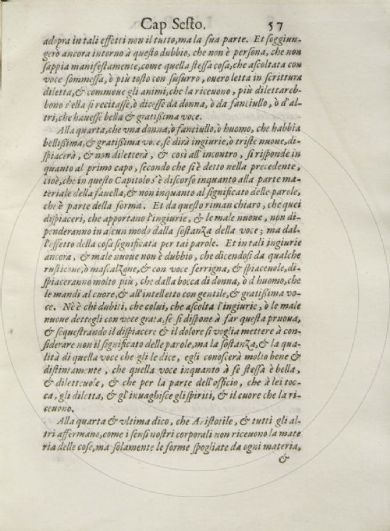 Cap Sesto. 57
adopra in tali effetti non il tutto, ma la sua parte. Et soggiun-
gerò ancora intorno à questo dubbio, che non è persona, che non
sappia manifestamente, come quella stessa cosa, che ascoltata con
voce sommessa, ò più tosto con susurro, ouero letta in scrittura
diletta, & commoue gli animi, che la riceuono, più dilettareb-
bono s'ella si recitasse, ò dicesse da donna, ò da fanciullo, ò d'al-
tri, che hauesse bella & gratissima voce.
Alla quarta, che vna donna, ò fanciullo, ò huomo, che habbia
bellissima, & gratissima voce, se dirà ingiurie, ò triste nuoue, di-
spiacerà, & non diletterà, & così all'incontro, si risponde in
quanto al primo capo, secondo che si è detto nella precedente,
cioè, che in questo Capitolo s'è discorso inquanto alla parte ma-
teriale della fauella, & non inquanto al significato delle parole,
che è parte della forma. Et da questo riman chiaro, che quei
dispiaceri, che apportano l'ingiurie, & le male nuoue, non di-
penderanno in alcun modo dalla sostanza della voce; ma dal-
l'effetto della cosa significata per tai parole. Et in tali ingiurie
ancora, & male nuoue non è dubbio, che dicendosi da qualche
rusticone, ò mascalzone, & con voce ferrigna, & spiaceuole, di-
spiaceranno molto più, che dalla bocca di donna, ò d'huomo, che
le mandi al cuore, & all'intelletto con gentile, & gratissima vo-
ce. Nè è chi dubiti, che colui, che ascolta l'ingiurie, ò le male
nuoue dettegli con voce grata, se si dispone à far questa pruoua,
& sequestrando il dispiacere & il dolore si voglia mettere à con-
siderare non il significato delle parole, ma la sostanza, & la qua-
lità di quella voce che gli le dice, egli conoscerà molto bene &
distintamente, che quella voce inquanto à se stessa è bella,
& dilettuole, & che per la parte dell'officio, che à lei toc-
ca, gli diletta, & gl'inuaghisce gli spiriti, & il cuore che la ri-
ceuono.
Alla quarta & vltima dico, che Aristotile, & tutti gli al-
tri affermano, come i sensi nostri corporali non riceuono la mate
ria delle cose, ma solamente le forme spogliate da ogni materia,
&